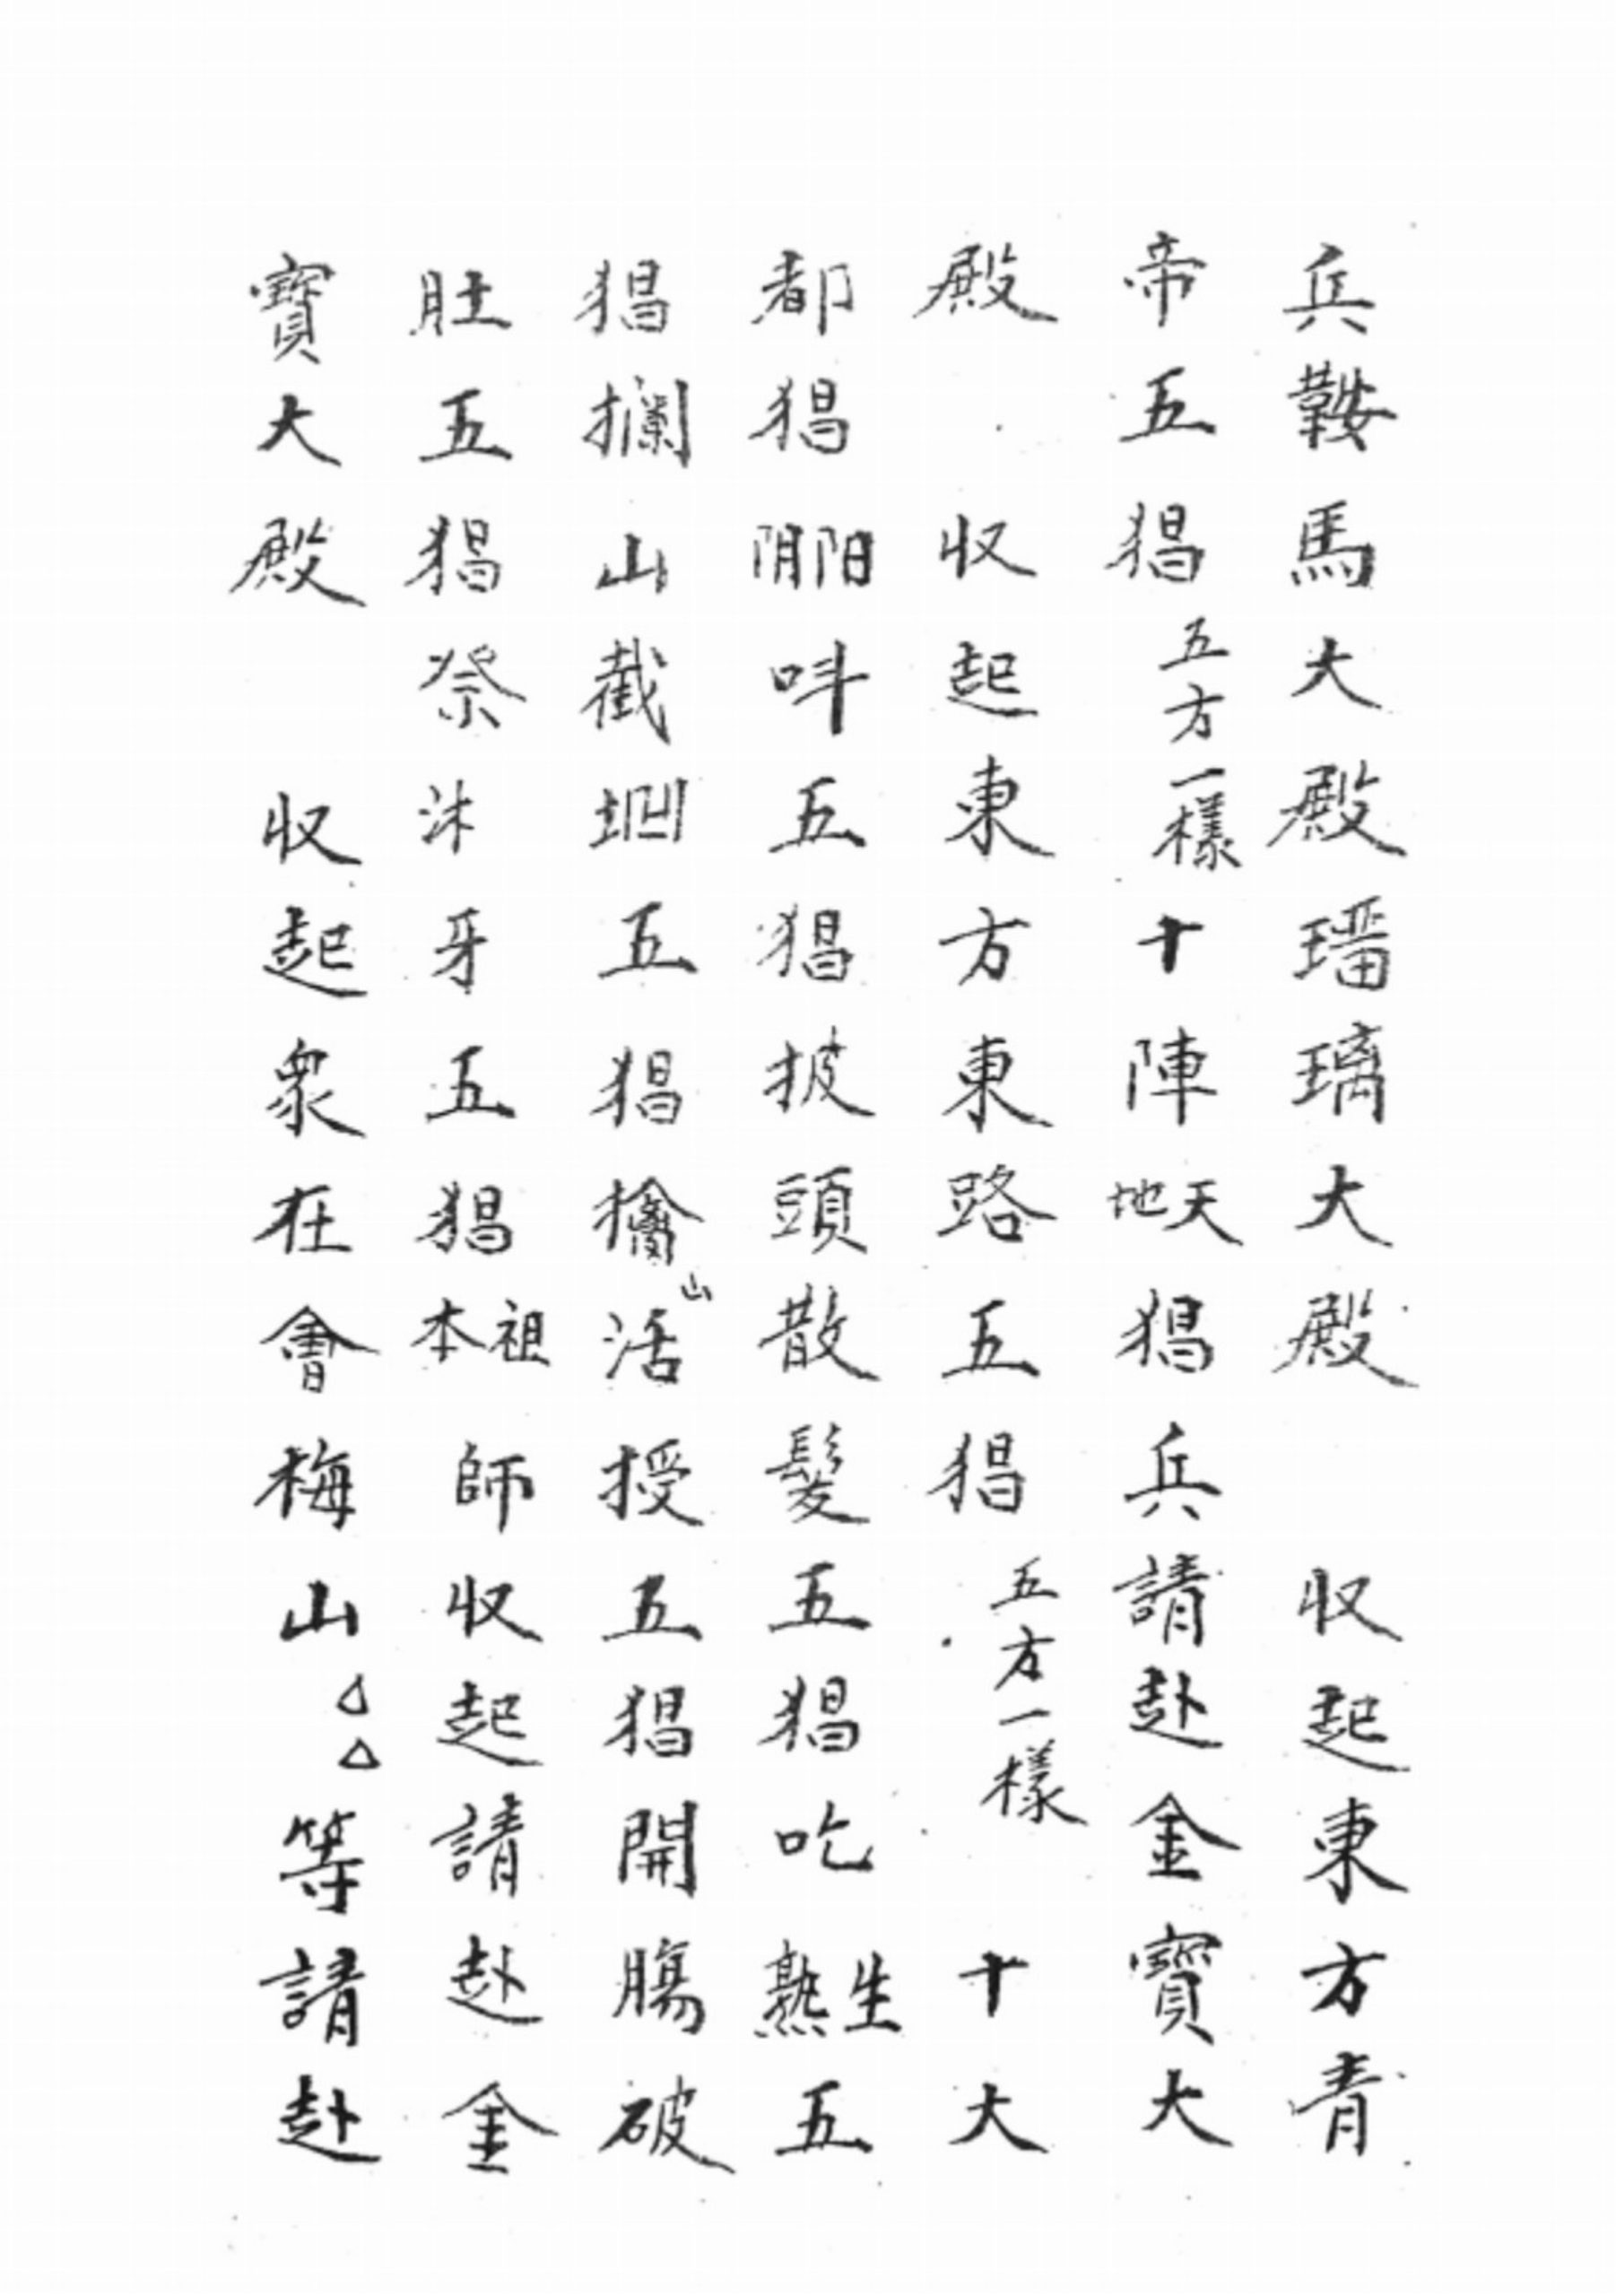 兵鞍馬大殿璠璃大殿　收起東方青
帝五猖五方一樣十陣天地猖兵請赴金寶大
殿　收起東方東路五猖五方一樣十大
都猖陽陰呌五猖披頭散髮五猖吃生熟五
猖攔山截五猖擒山活授五猖開腸破
肚五猖祭沐牙五猖祖本師收起請赴金
寶大殿　收起眾在會梅山△△等請赴